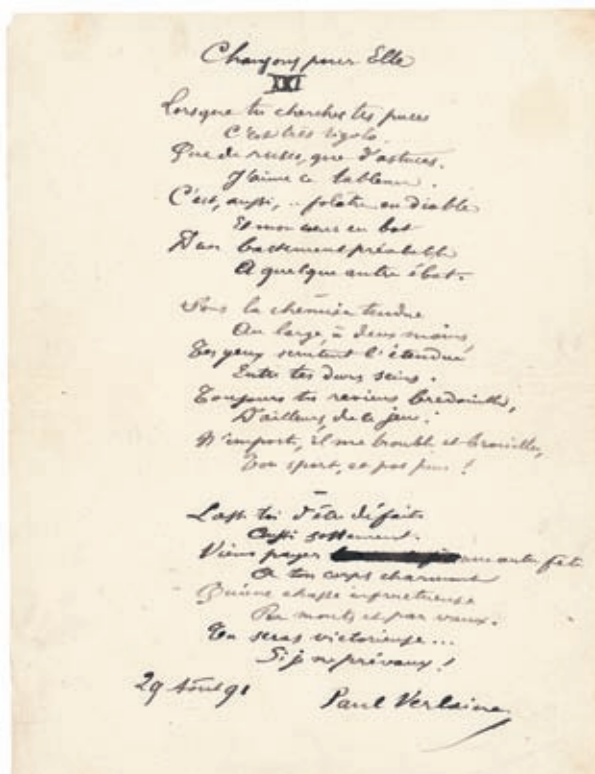 Chansons pour Elle
XXI
Lorsque tu cherches tes puces
C'est très rigolo.
Que de ruses, que d'astuces.
J'aime ce tableau.
C'est, aussi, .. folâtre en diable
Et mon cœur en bat
D'un battement préalable
A quelque autre ébat.
Sous la chemise tendue
Au large, à deux mains,
Tes yeux scrutent l'étendue
Entre tes durs seins.
Toujours tu reviens bredouille,
D'ailleurs, de ce jeu.
N'importe, il me trouble et brouille,
Ton sport, et pas peu !
Lasse-toi d'être défaite
Aussi sottement.
Viens payer une autre fête
A ton corps charmant
Qu'une chasse infructueuse
Par monts et par vaux.
Tu seras victorieuse...
Si je ne prévaux !
29 Août 91
Paul Verlaine